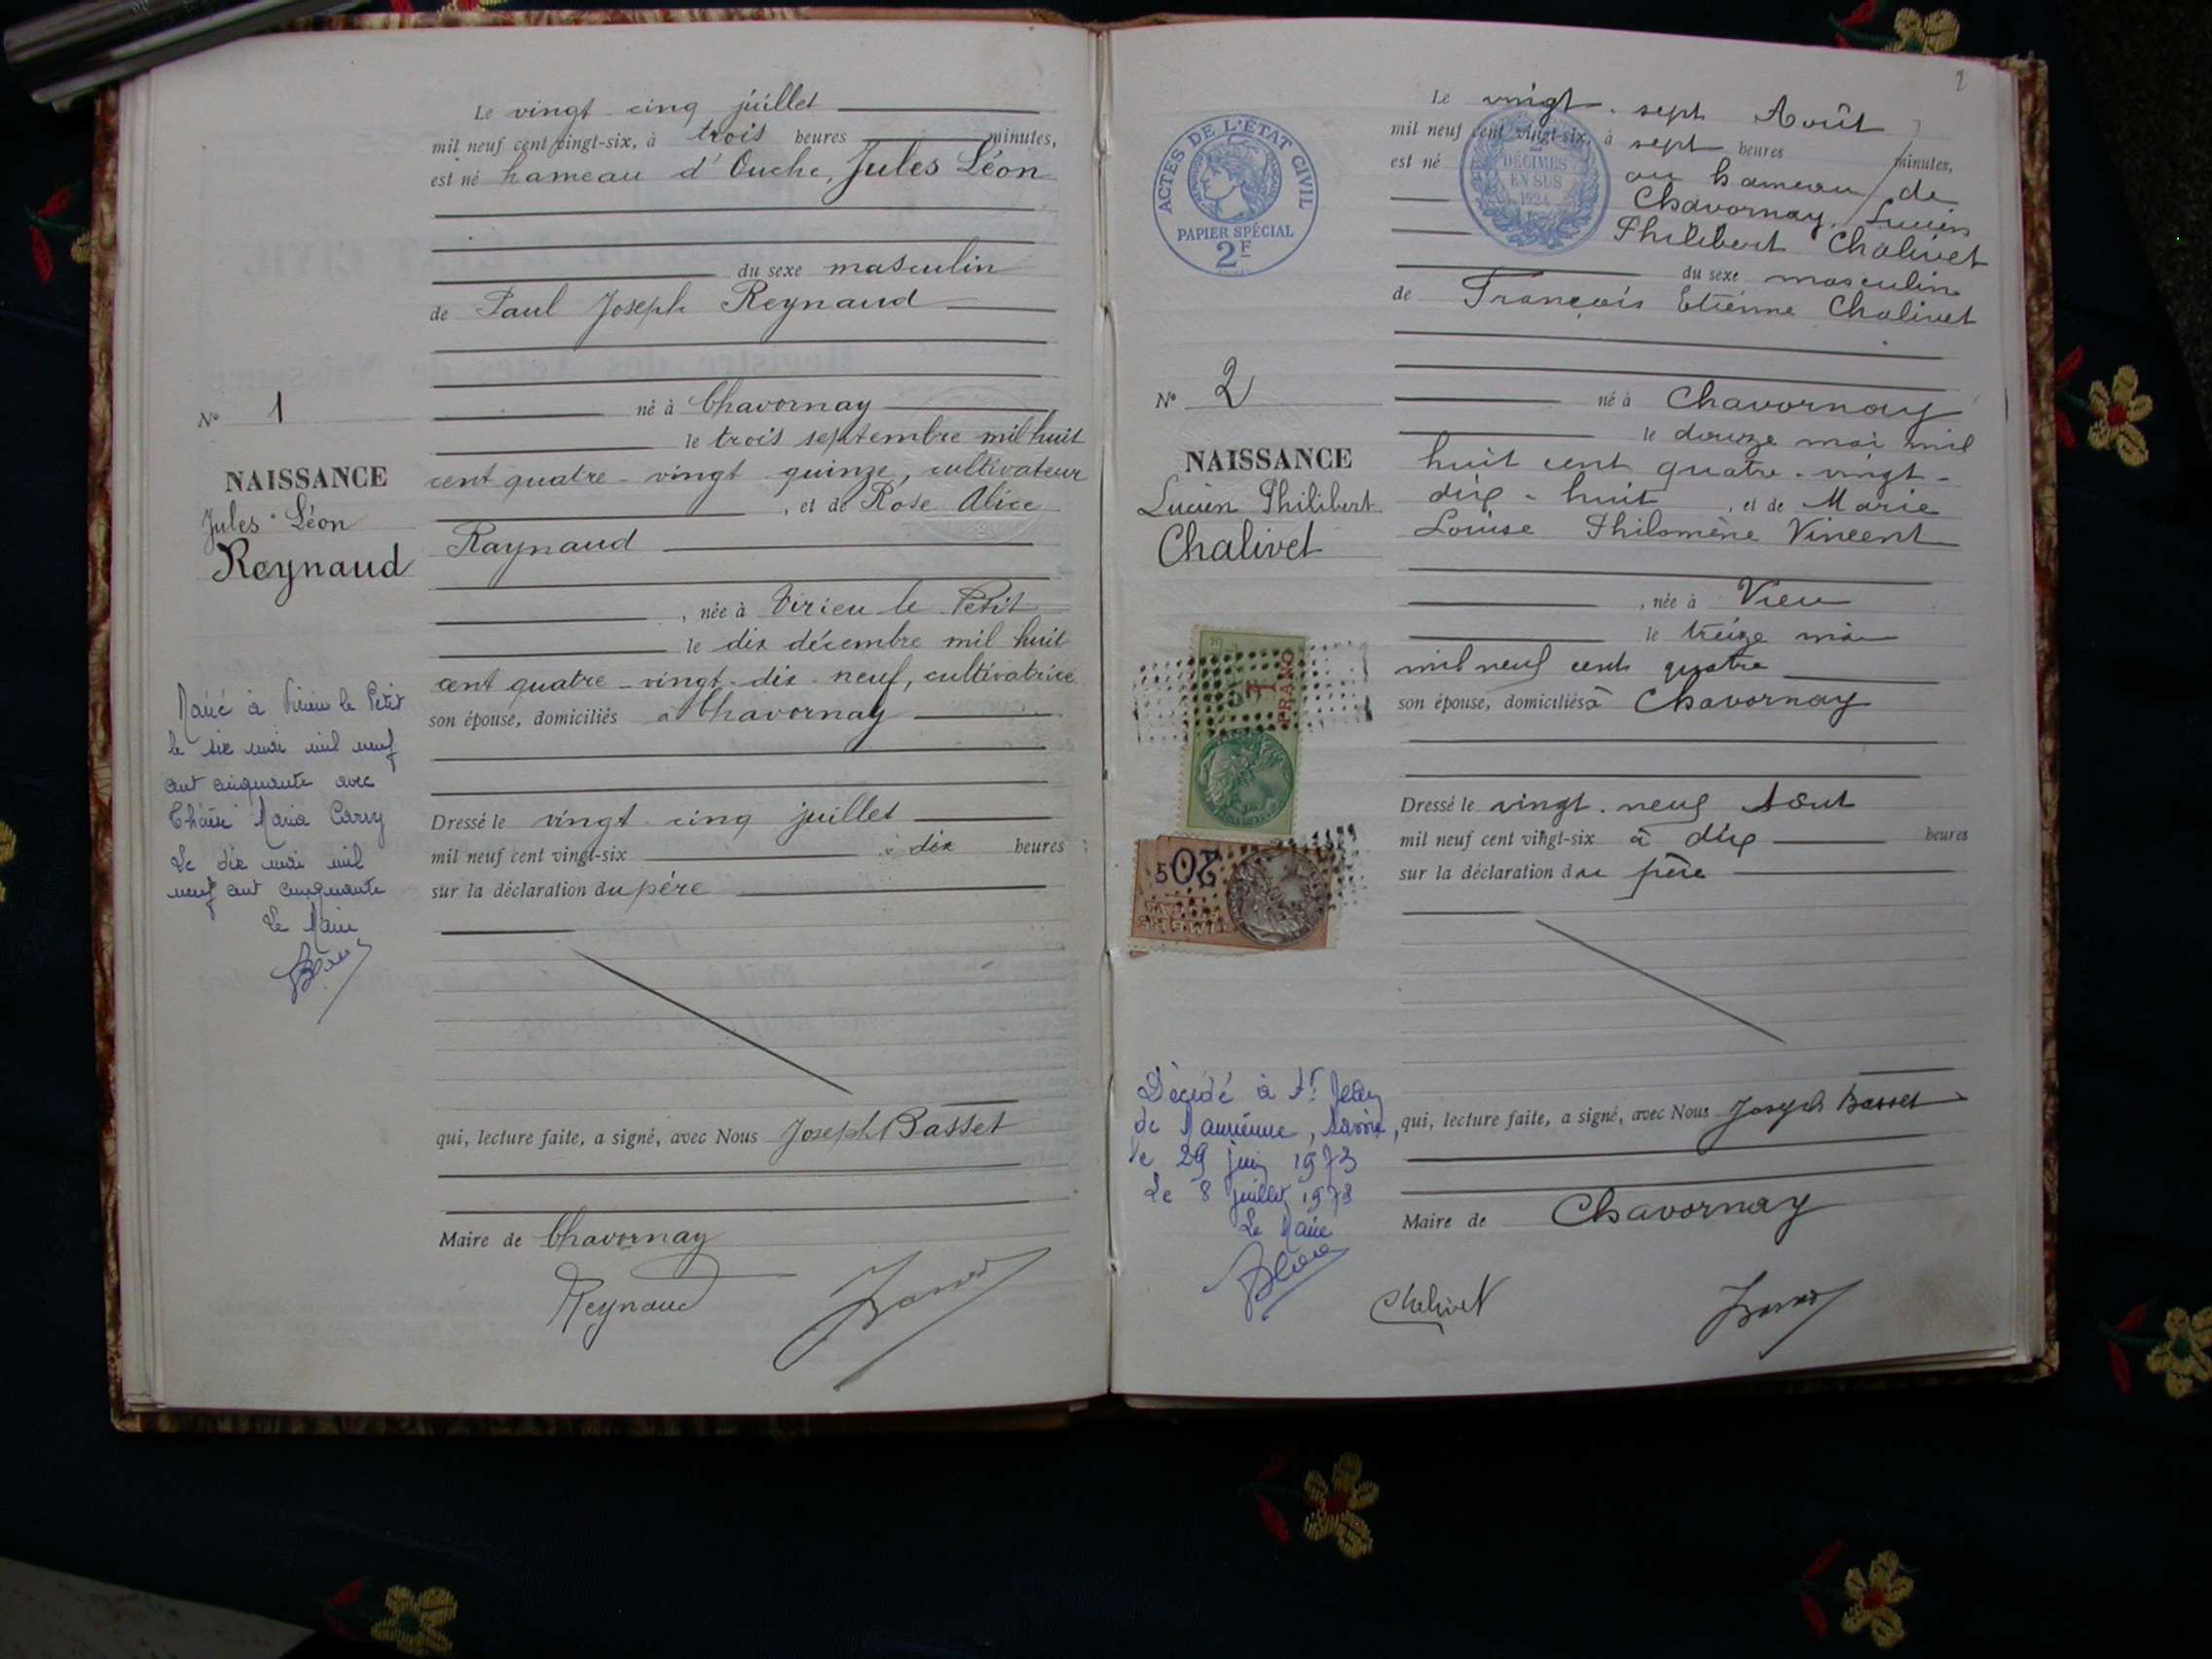 Le vingt cinq juillet
mil neuf cent vingt-six, à trois heures minutes,
est né hameau d'Ouche, Jules Léon
du sexe masculin
de Paul Joseph Reynaud
né à Chavornay
le trois septembre mil huit
cent quatre-vingt quinze, cultivateur
, et de Rose Alice
Raynaud
, née à Virieu le Petit
le dix décembre mil huit
cent quatre-vingt-dix-neuf, cultivatrice
son épouse, domiciliés à Chavornay
Dressé le vingt cinq juillet
mil neuf cent vingt-six à dix heures
sur la déclaration du père
qui, lecture faite, a signé, avec Nous Joseph Basset
Maire de Chavornay
Reynaud
No 1
NAISSANCE
Jules Léon
Reynaud
Marié à Virieu le Petit
le six mai mil neuf
cent cinquante avec
Maria
Le dix mai mil
neuf cent cinquante
Le Maire
2
ACTES DE L'ÉTAT CIVIL
PAPIER SPÉCIAL
2F
DÉCIMES
EN SUS
1924
Le vingt-sept Août
mil neuf cent vingt-six, à sept heures minutes,
est né au hameau de
Chavornay, Lucien
Philibert Chalivet
du sexe masculin
de François Etienne Chalivet
né à Chavornay
le douze mai mil
huit cent quatre-vingt-
dix-huit, et de Marie
Louise Philomène Vincent
, née à Vieu
le treize mai
mil neuf cent quatre
son épouse, domiciliés à Chavornay
Dressé le vingt-neuf Août
mil neuf cent vingt-six à dix heures
sur la déclaration du père
qui, lecture faite, a signé, avec Nous Joseph Basset
Maire de Chavornay
Chalivet
No 2
NAISSANCE
Lucien Philibert
Chalivet
1
FRANC
50
Décédé à St Jean
de Maurienne, Savoie,
le 29 juin 1973
Le 8 juillet 1973
Le Maire